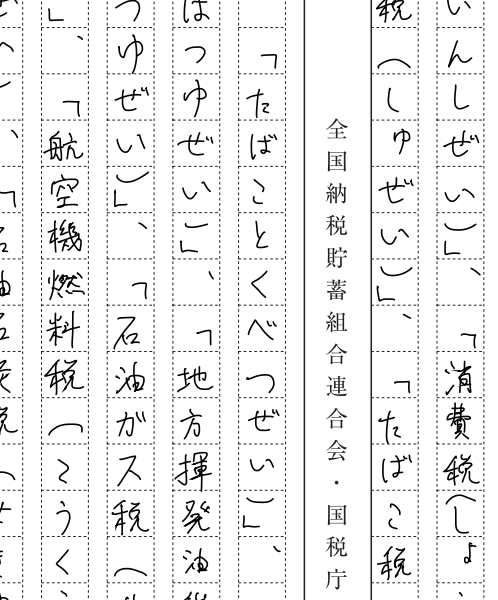 いんしぜい)」、「消費税(しょ
税(しゅぜい)」、「たばこ税
全国納税貯蓄組合連合会・国税庁
「たばことくべつぜい)」、
はつゆぜい)」、「地方揮発油税
つゆぜい)」、「石油ガス税(
」、「航空機燃料税(こうく